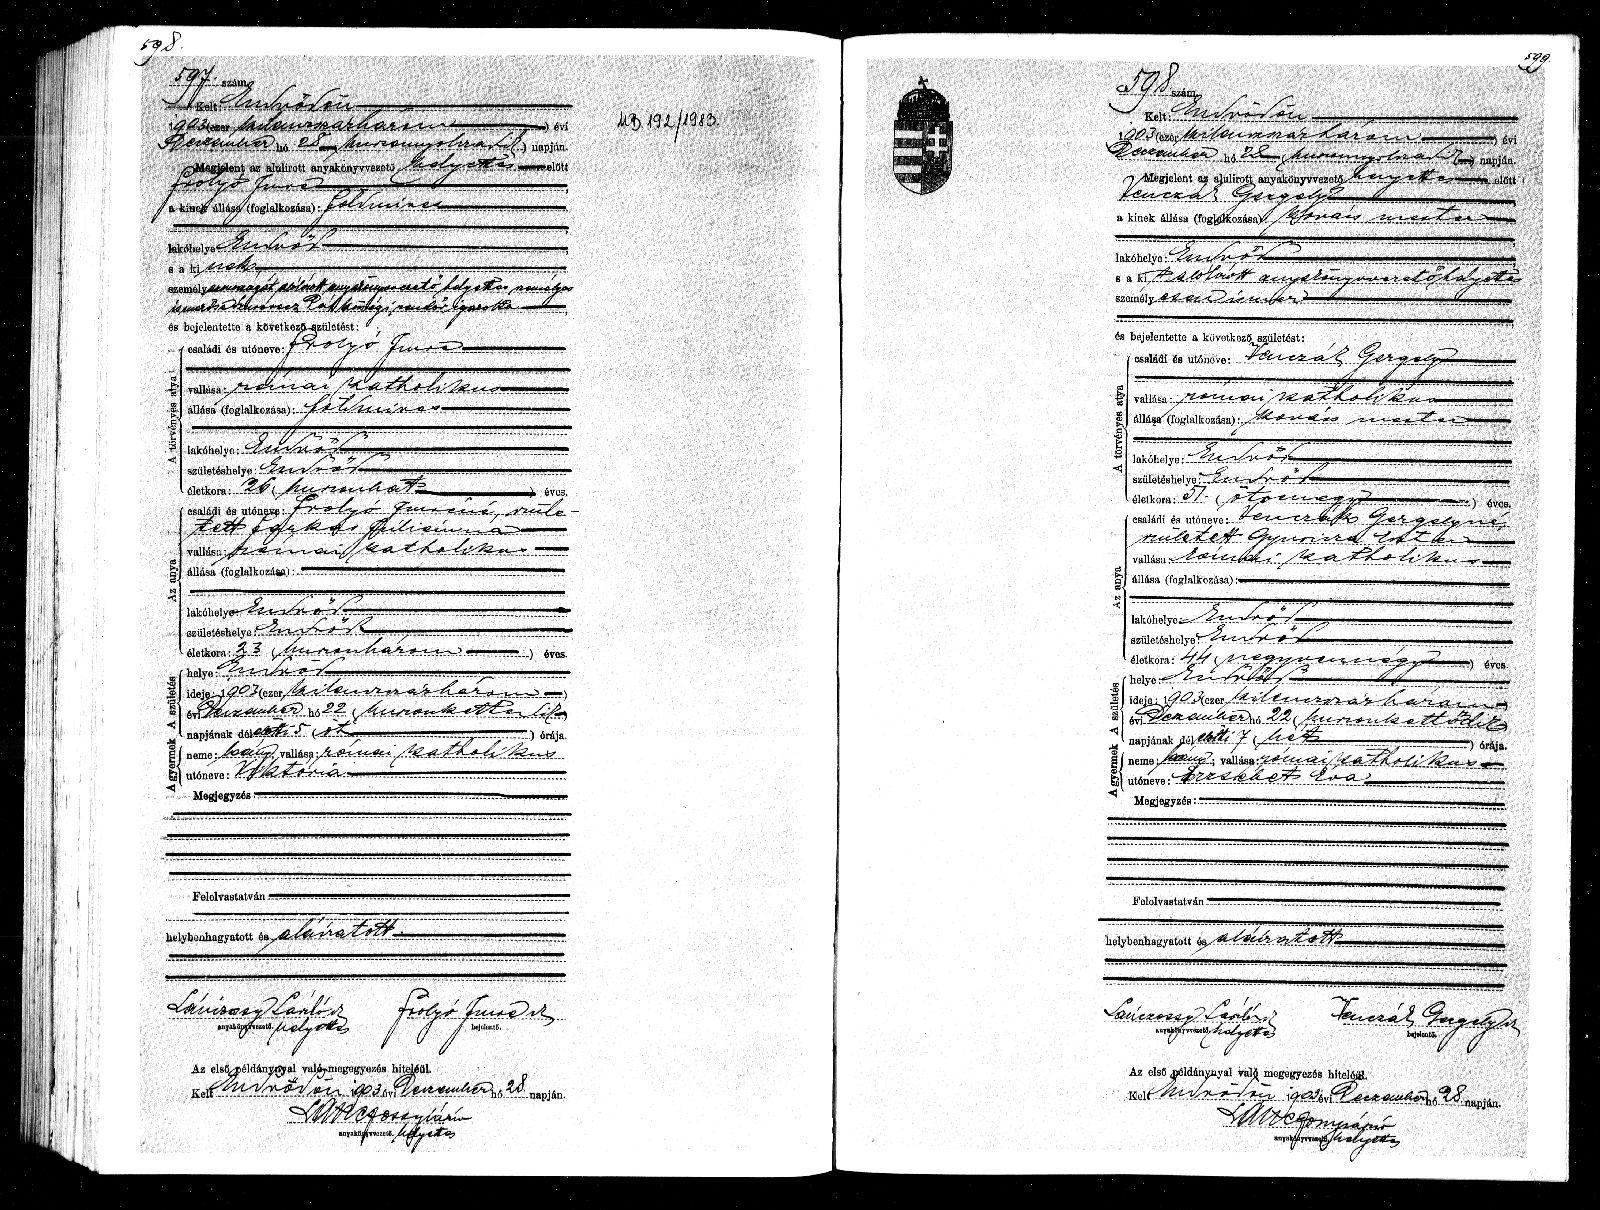 598.
597. szám
Kelt Endrődön
1903 (ezer kilenczszázhárom) évi
Deczember hó 28 (huszonnyolczadik) napján.
Megjelent az alulirott anyakönyvvezető helyettes előtt
Imre
a kinek állása (foglalkozása): földmives
lakóhelye Endrőd
s a ki nek
személy azonosságát alólirott anyakönyvvezető helyettes személyes
községi rendőr igazolta
és bejelentette a következő születést:
A törvényes atya
családi és utóneve: Imre
vallása: római katholikus
állása (foglalkozása): földmives
lakóhelye: Endrőd
születéshelye: Endrőd
életkora: 26 (huszonhat) éves.
Az anya
családi és utóneve: Imréné, szüle-
tett Farkas
vallása: római katholikus
állása (foglalkozása):
lakóhelye: Endrőd
születéshelye: Endrőd
életkora: 23 (huszonhárom) éves.
A születés
helye: Endrőd
ideje: 1903 (ezer kilenczszázhárom)
évi Deczember hó 22 (huszonkettedik)
napjának dél előtti 5 (öt) órája.
A gyermek
neme: leány; vallása: római katholikus
utóneve: Viktória
Megjegyzés:
Felolvastatván
helybenhagyatott és aláiratott
anyakönyvvezető. helyettes
Imre
bejelentő.
Az első példánynyal való megegyezés hiteléül.
Kelt Endrődön 1903 évi Deczember hó 28 napján.
anyakönyvvezető. helyettes
192/1983.
599.
598 szám
Kelt: Endrődön
1903 (ezer kilenczszázhárom) évi
Deczember hó 28 (huszonnyolczadik) napján.
Megjelent az alulirott anyakönyvvezető helyettes előtt
Venczák Gergely
a kinek állása (foglalkozása): kovács mester
lakóhelye: Endrőd
s a kit alólirott anyakönyvvezető helyettes
személyesen ismer
és bejelentette a következő születést:
A törvényes atya
családi és utóneve: Venczák Gergely
vallása: római katholikus
állása (foglalkozása): kovács mester
lakóhelye: Endrőd
születéshelye: Endrőd
életkora: 51 (ötvenegy) éves.
Az anya
családi és utóneve: Venczák Gergelyné,
született Eszter
vallása: római katholikus
állása (foglalkozása):
lakóhelye: Endrőd
születéshelye: Endrőd
életkora: 44 (negyvennégy) éves.
A születés
helye: Endrőd
ideje: 1903 (ezer kilenczszázhárom
évi Deczember hó 22 (huszonkettődik
napjának dél előtti 7 (hét) órája.
A gyermek
neme: leány; vallása: római katholikus
utóneve: Erzsébet Éva
Megjegyzés:
Felolvastatván
helybenhagyatott és aláiratott
anyakönyvvezető. helyettes
Venczák Gergely
bejelentő.
Az első példánynyal való megegyezés hiteléül.
Kelt Endrődön 1903 évi Deczember hó 28 napján.
anyakönyvvezető. helyettes